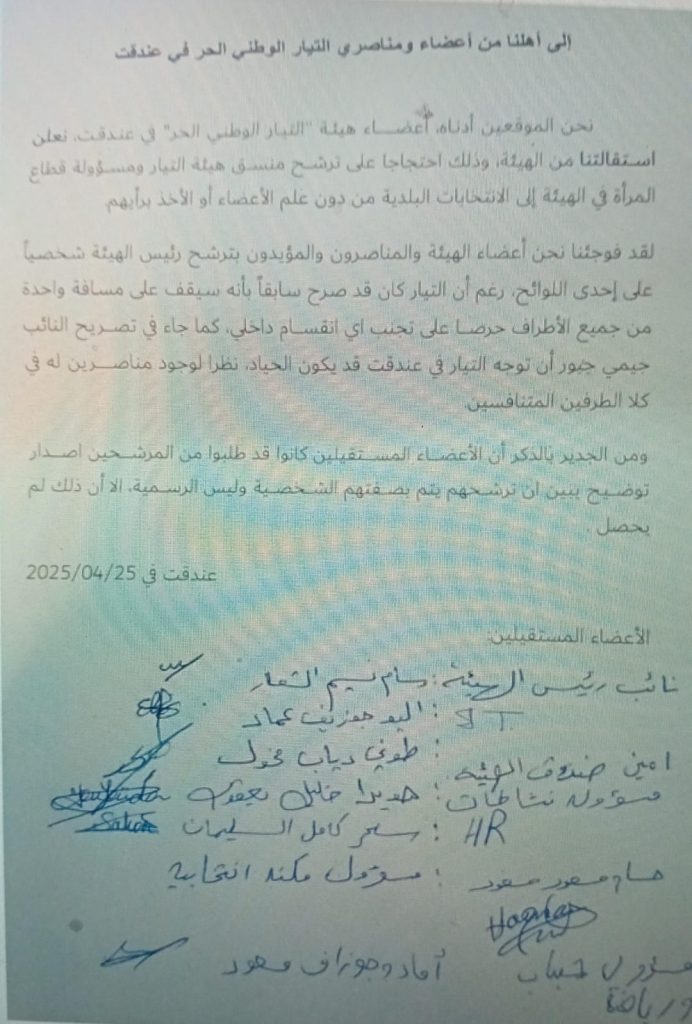 إلى أهلنا من أعضاء ومناصري التيار الوطني الحر في عندقت
نحن الموقعين أدناه، أعضاء هيئة "التيار الوطني الحر" في عندقت، نعلن
استقالتنا من الهيئة، وذلك احتجاجا على ترشح منسق هيئة التيار ومسؤولة قطاع
المرأة في الهيئة إلى الانتخابات البلدية من دون علم الأعضاء أو الأخذ برأيهم.
لقد فوجئنا نحن أعضاء الهيئة والمناصرون والمؤيدون بترشح رئيس الهيئة شخصياً
على إحدى اللوائح، رغم أن التيار كان قد صرح سابقاً بأنه سيقف على مسافة واحدة
من جميع الأطراف حرصا على تجنب اي انقسام داخلي، كما جاء في تصريح النائب
جيمي جبور أن توجه التيار في عندقت قد يكون الحياد، نظرا لوجود مناصرين له في
كلا الطرفين المتنافسين.
ومن الجدير بالذكر أن الأعضاء المستقيلين كانوا قد طلبوا من المرشحين اصدار
توضيح يبين ان ترشحهم يتم بصفتهم الشخصية وليس الرسمية، الا أن ذلك لم
يحصل .
عندقت في 2025/04/25
الأعضاء المستقيلين:
نائب رئيس الهيئة : بسام نسيم الشعار
IT : اليو جوزيف عماد
امين صندوق الهيئة : طوني دياب مخول
مسؤولة نشاطات : هويدا خليل يعقوب
HR : سحر كامل السليمان
مسعود مسعود : مسؤول مكنة انتخابية
مسؤول شباب ورياضة جوزاف مسعود